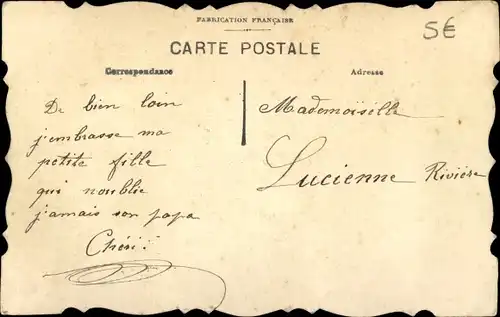 FABRICATION FRANÇAISE
5€
CARTE POSTALE
Correspondance
Adresse
De bien loin
j'embrasse ma
petite fille
qui n'oublie
j'amais son papa
Chéri.
Mademoiselle
Lucienne Rivière